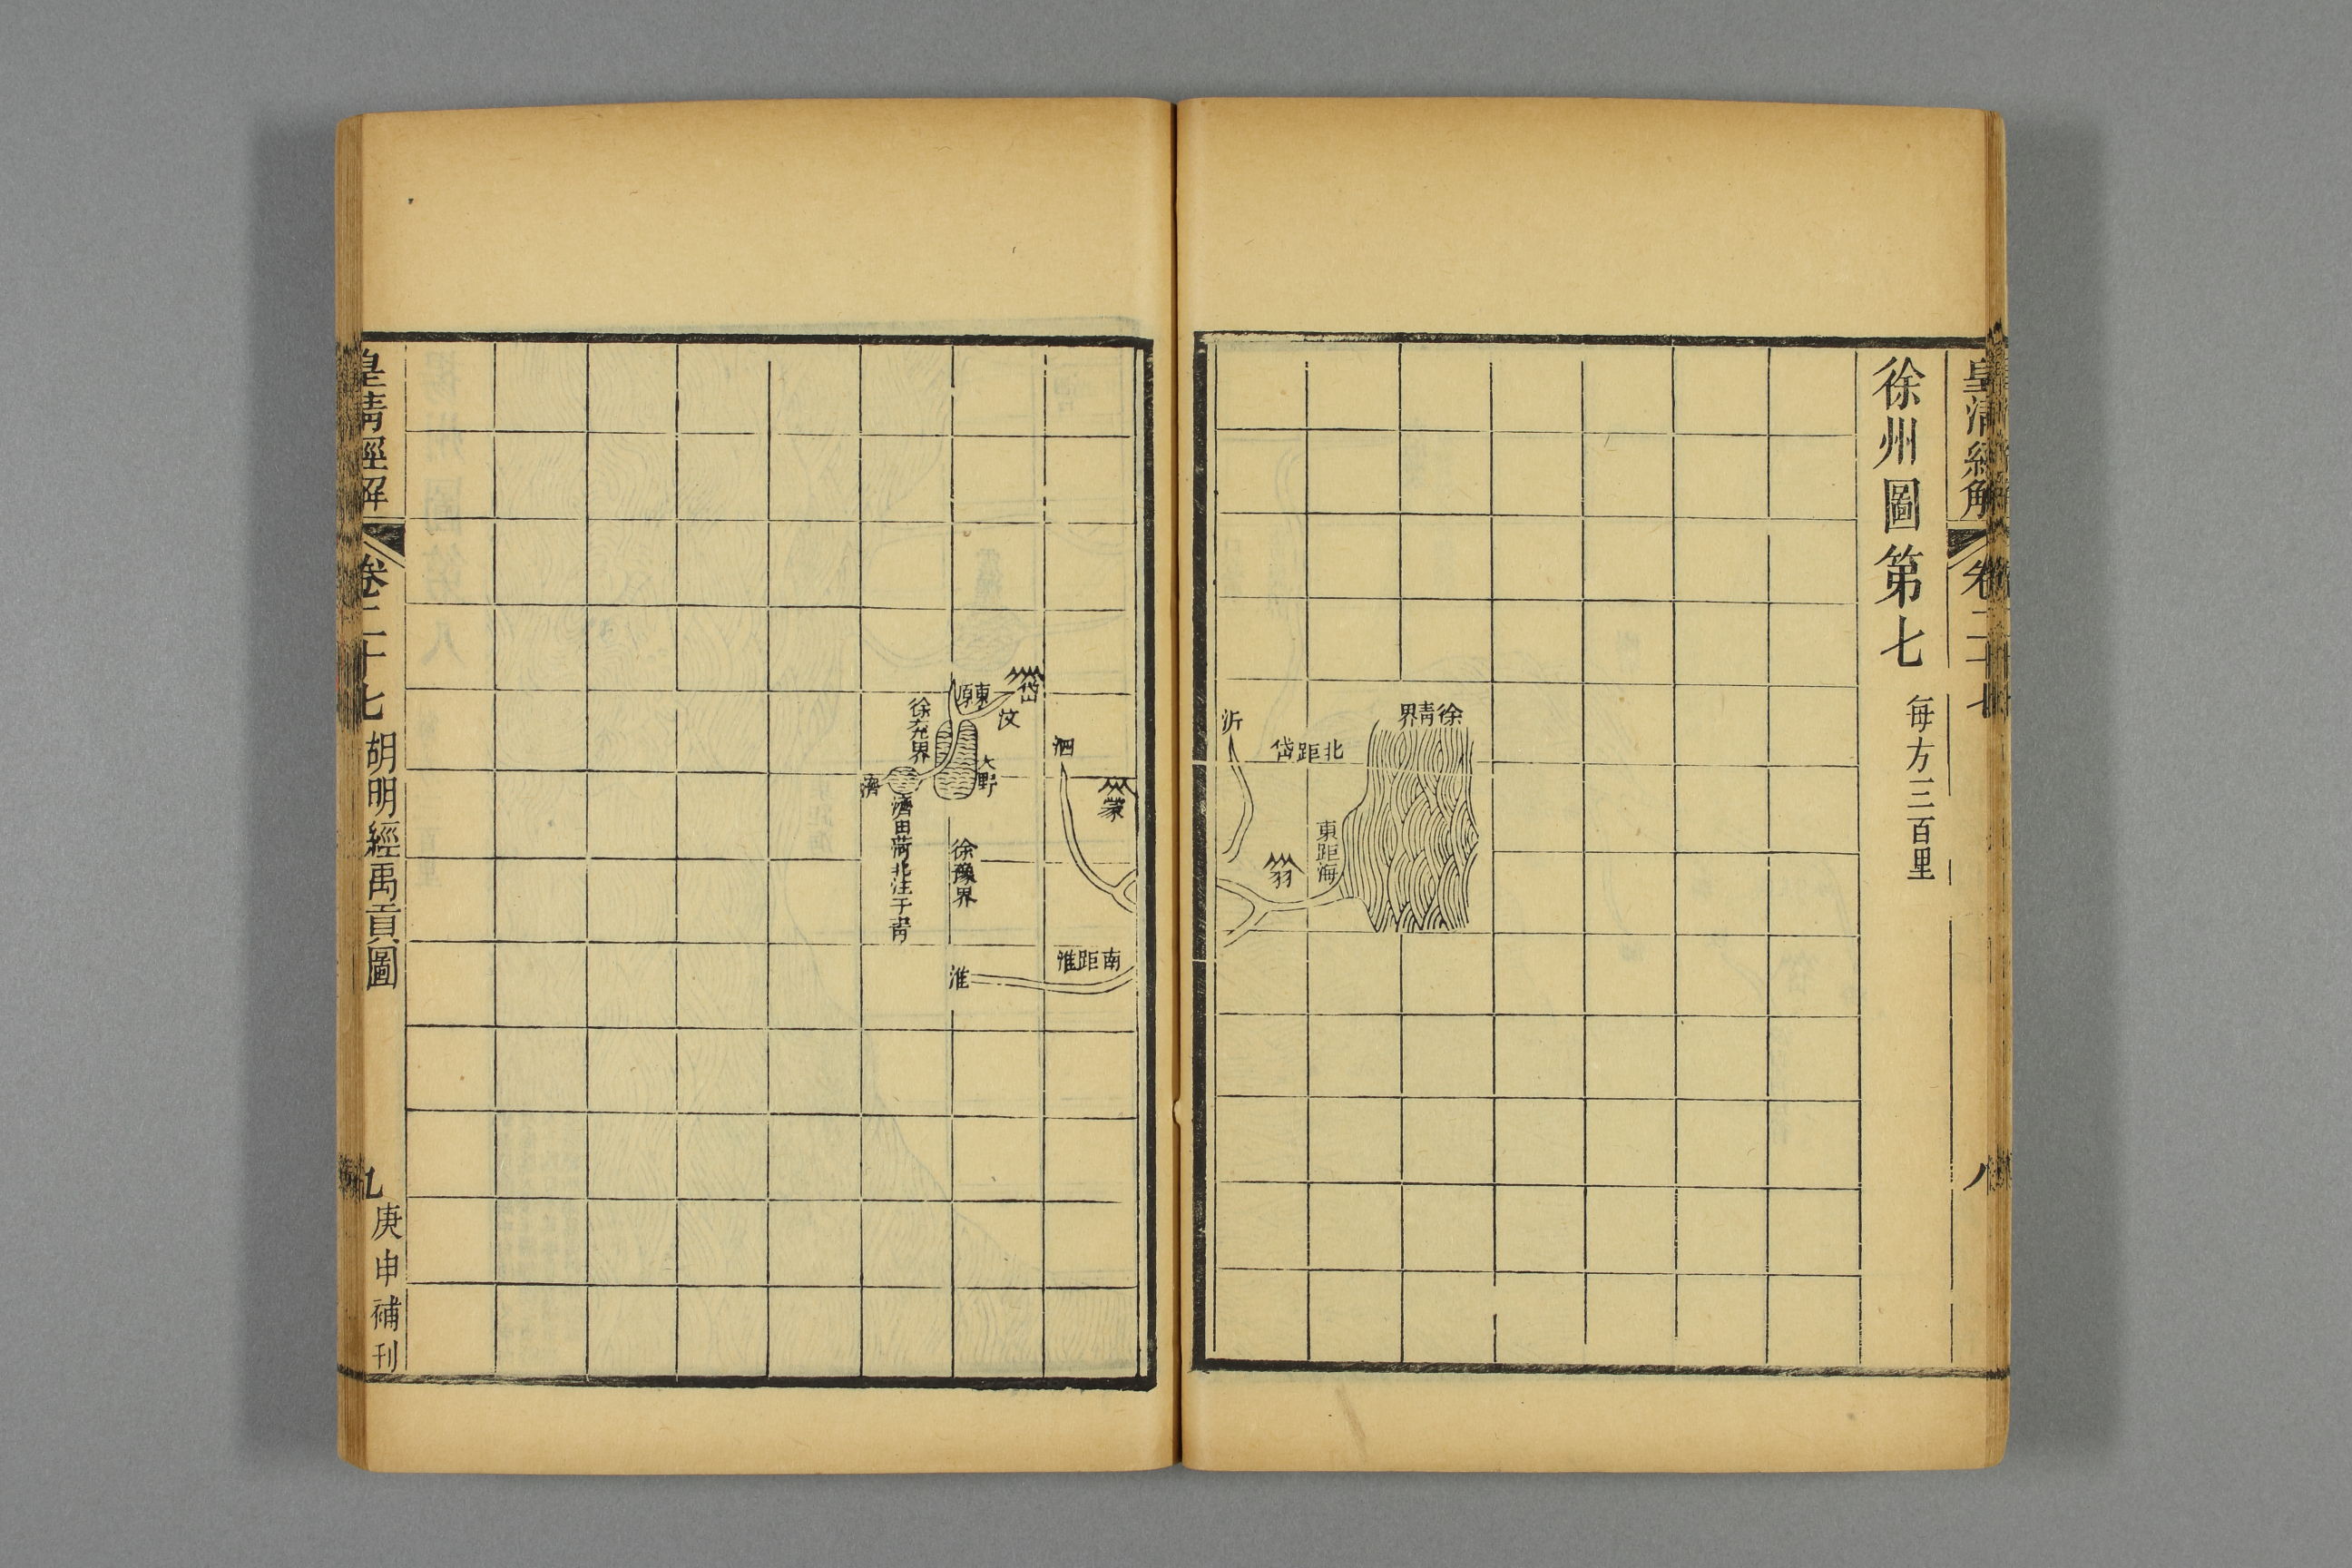 皇清經解
卷二十七
八
徐州圖第七
每方三百里
徐青界
北距岱
東距海
沂
羽
蒙
泗
南距淮
淮
岱
汶
東原
大野
徐兗界
徐豫界
濟
皇清經解
卷二十七
胡明經禹貢圖
九
庚申補刊